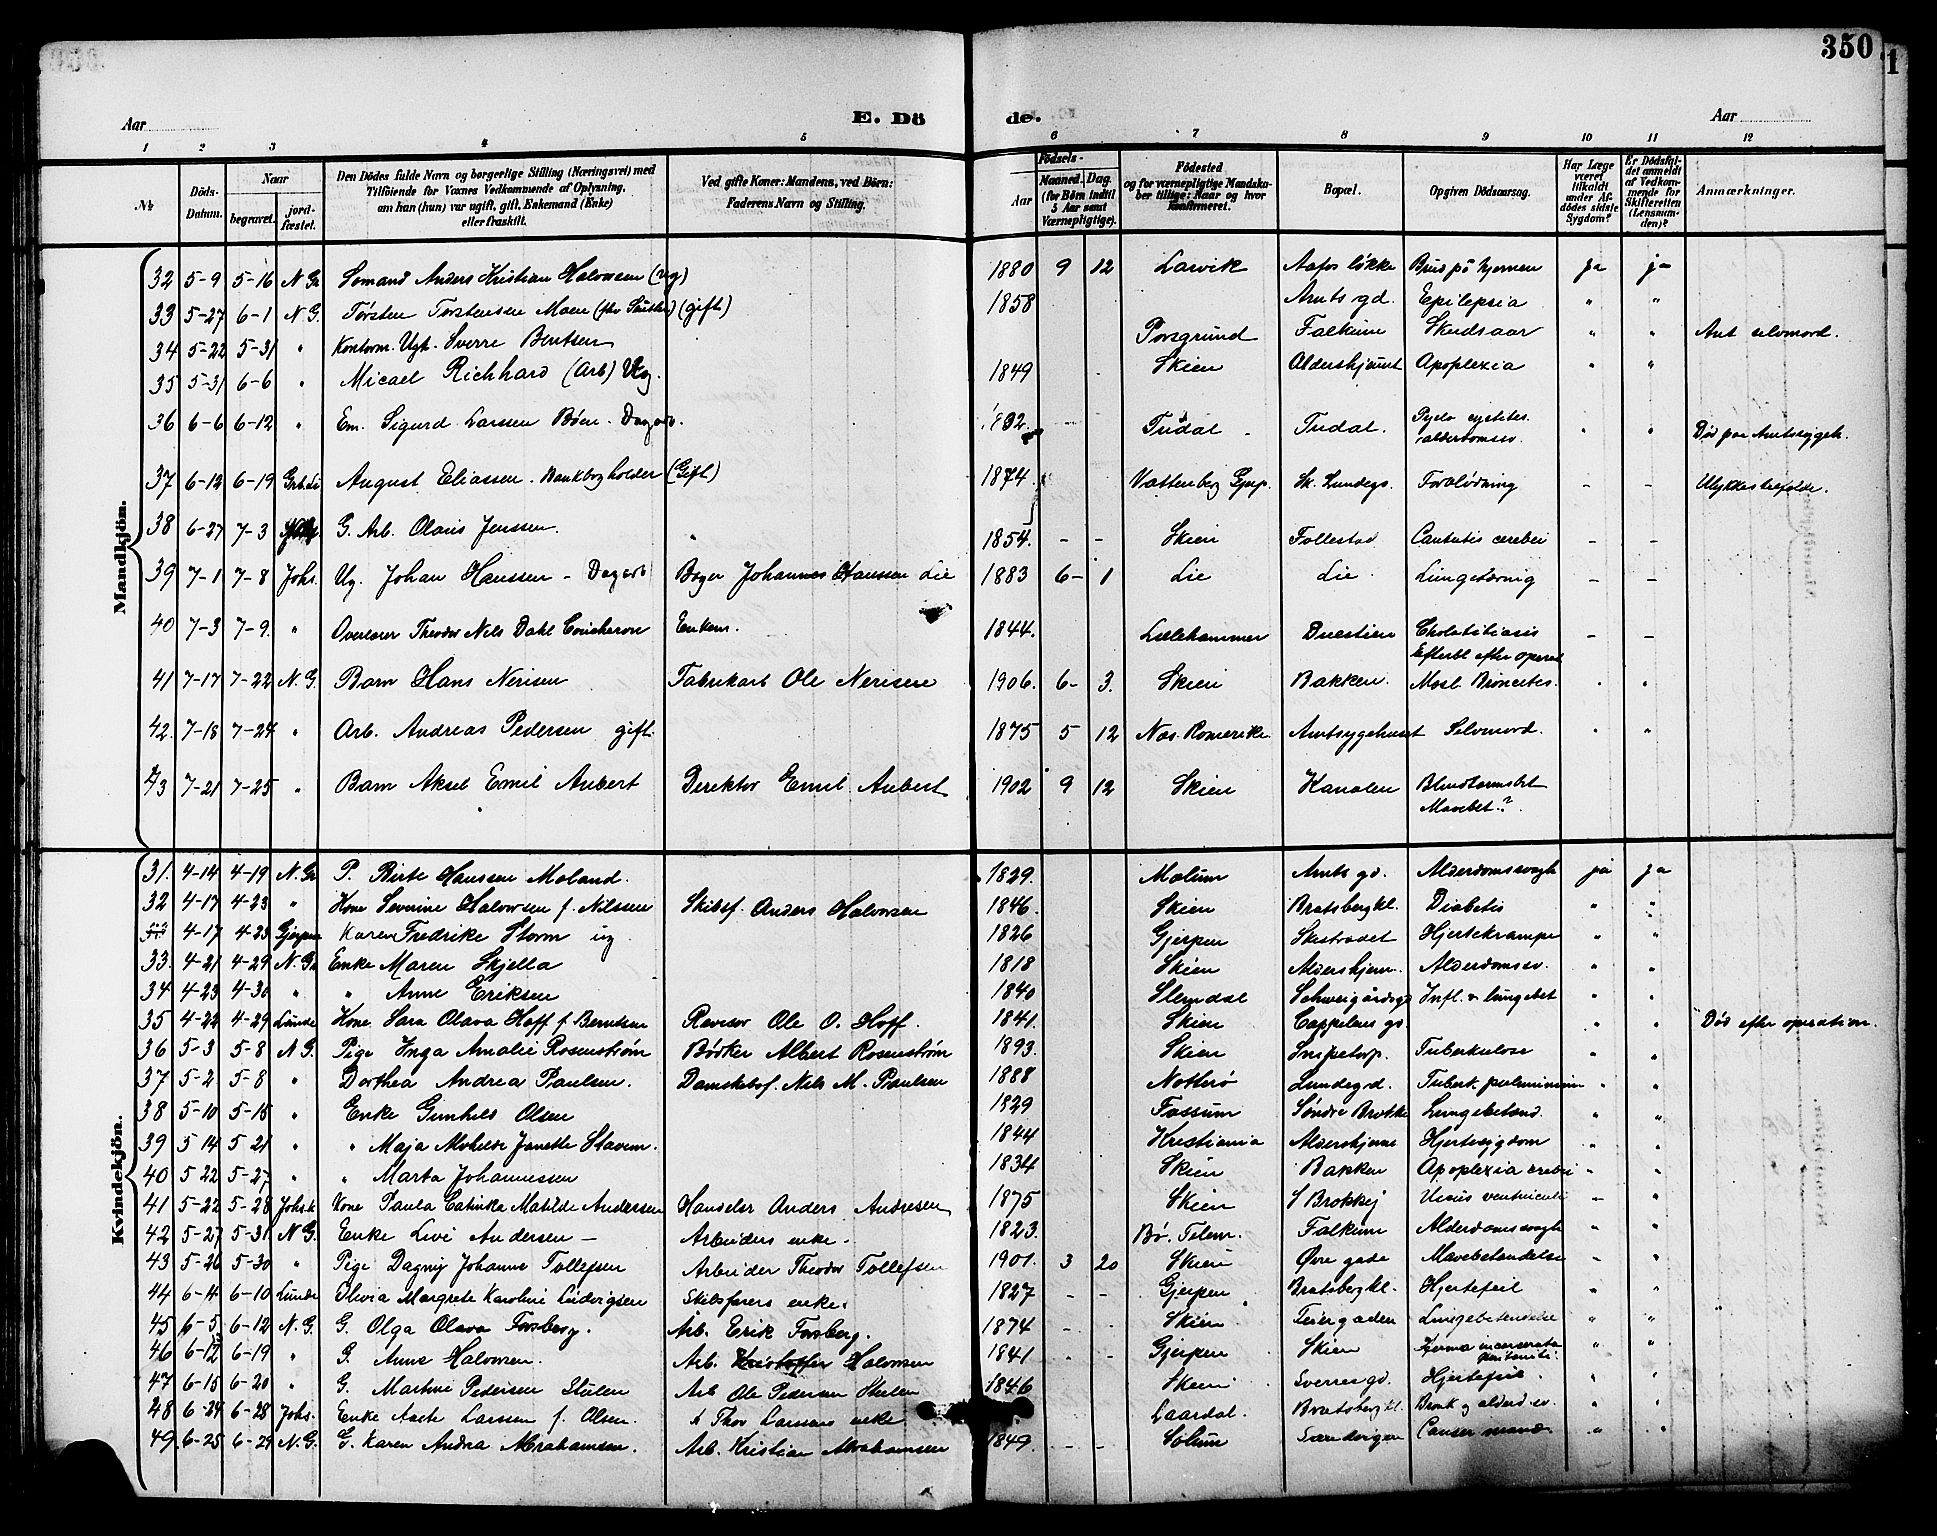 350
1
E. Dö de.
Aar
Aar
1 2 3 4 5 6 7 8 9 10 11 12
№
Döds-Datum.
Naar
begravet.
jord-fæstet.
Den Dödes fulde Navn og borgerlige Stilling (Næringsvei) med
Tilföiende for Voxnes Vedkommende af Oplysning,
om han (hun) var ugift, gift, Enkemand (Enke)
eller fraskilt.
Ved gifte Koner: Mandens, ved Börn:
Faderens Navn og Stilling.
Födsels-
Aar
Maaned. Dag.
(for Børn indtil
5 Aar samt
Værnepligtige).
Födested
og for værnepligtige Mandska-
ber tillige: Naar og hvor
konfirmeret.
Bopæl.
Opgiven Dödsaarsag.
Har Læge
været
tilkaldt
under Af-
dödes sidste
Sygdom?
Er Dödsfal-
det anmeldt
af Vedkom-
mende for
Skifteretten
(Lensman-
den)?
Anmærkninger.
Mandkjön.
32 5-9 5-16 N Gr Sømand Anders Kristian Halvorsen (ug) 1880 9 12 Larvik løkke hjernen ja ja
33 5-27 6-1 N G. Tørsten Torstensen Moen (gift) 1858 Amts gd. Epilepsia " "
34 5-22 5-31 " Kontorm. Ugt. Sverre Bentsen Porsgrund Falkum Skudsaar " " Ant selvmord.
35 5-31 6-6 " Micael Richhard (Arb) Ug. 1849 Skien Aldershjemt Apoplexia " "
36 6-6 6-12 " Em. Sigurd Larssen Bøen - Dagarb. Tudal - Tudal. Pyelo cystites. " " Død paa Amtssygeh.
37 6-12 6-19 August Eliassen. (Gift) 1874 Vattenberg Gjerp. Sk. Lundegs. Forblødning - - Ulykkestilfælde.
38 6-27 7-3 G. Arb. Olaus Jenssen. " 1854. - - Skien Follestad cerebri - -
39 7-1 7-8 Johs. Ug. Johan Hanssen - Dagarb Johannes Hanssen Lie 1883 6- 1 Lie Lie Lungetæring - -
40 7-3 7-9. " Overlærer Theodor Nils Dahl Coucheron Enkem. 1844. Lillehammer Duestien Cholelitiasis - -
Efterbl efter operat
41 7-17 7-22 N. G. Barn Hans Nerisen Fabrikarb Ole Nerisen 1906. 6- 3. Skien Bakken. Bronkites. " "
42. 7-18 7-24 " Arb. Andreas Pedersen gift. 1875 5 12 Næs. Romerike. Amtsygehuset Selvmord. " "
43 7-21 7-25 " Barn Aksel Emil Aubert Direktør Emil Aubert 1902 9 12 Skien Kanalen Blindtarmsbet
Mavebet.?
Kvindekjön.
31. 4-14 4-19 N. Gr P. Birte Hanssen Moland. 1829. Mælum Amts gd. Alderdomssvagh ja ja
32 4-17 4-23 " Kone Severine Halvorsen f. Nilssen Skibsf. Anders Halvorsen 1846. Skien Bratsbergkl. Diabetis " "
4-17 4-23 Gjerpen Karen Fredrike Storm ug 1826 Gjerpen Skistredet Hjertekrampe " "
33. 4-21 4-29 N. Gr Enke Maren Skjella 1818 Skien Aldershjem. Alderdomssv. " "
34 4-23 4-30 " " Anne Eriksen 1840 Slemdal Schweigårdsg Infl. & lungebet " "
35 4-22 4-29 Lunde Kone Sara Olava Hoff f. Berntsen Revisor Ole O. Hoff. 1841. Skien Cappelens gd. " " Død efter operation.
36 5-3 5-8 N G. Pige Inga Amalie Rosenstrøm Bødker Albert Rosenstrøm 1893. Skien Snipetorp. Tuberkulose " "
37 5-2 5-8 " Dorthea Andrea Paulsen. Damskibsf. Nils M. Paulsen 1888 Nøtterø Lundegd. Tuberk. pulmonum " "
38 5-10 5-15 " Enke Gunhild Olsen 1829 Fossum Søndre Brekke Lungebetænd. " "
39 5 14 5 21 " " Maja Mathilde Janette Stavem. 1844 Kristiania Aldershjem Hjertesygdom " "
40 5 22 5-27 " " Marta Johannessen 1834 Skien Bakken Apoplexia cerebri " "
41 5-22 5-28 Johs.k Kone Paula Catinka Matilde Andersen Handelsr Anders Andresen 1875 Skien S Brekkej Ulcus ventriculi - "
42 5-27 5-31 N G. Enke Livi Andersen - Arbeiders enke. 1823. Bø. Telem. Falkum Alderdomssvagh " "
43 5-26 5-30 " Pige Dagny Johanne Tollefsen Arbeider Theodor Tollefsen 1901. 3 20 Skien Øvre gade Mavebetændelse - "
44 6-4 6-10 Lunde Olivia Margrete Karoline Ludvigsen Skibsførers enke. 1827 - - Gjerpen Bratsbergkl. Hjertefeil " "
45 6-5 6-12 N. G. G. Olga Olava Forsberg. Arb. Erik Forsberg. 1874 - - Skien Feiergaden Lungebetændelse " "
46 6-12 6-19 " G. Anne Halvorsen. Arb. Kristoffer Halvorsen 1841 Gjerpen Skien incarserata " "
47 6-15 6-20 " G. Martine Pedersen Stulen Arb Ole Pedersen Stulen 1846 Skien Sverresgd. Hjertefeil. " "
48 6-24 6-28 Johs. Enke Aaste Larssen f. Olsen. Thor Larssens enke Laardal. Bratsbergkl. Bronk og alderd. sv. " "
49 6-25 6-29 N. G. G. Karen Andrea Abrahamsen. Arb. Kristian Abrahamsen 1849. - - Solum Canser mamæ " "